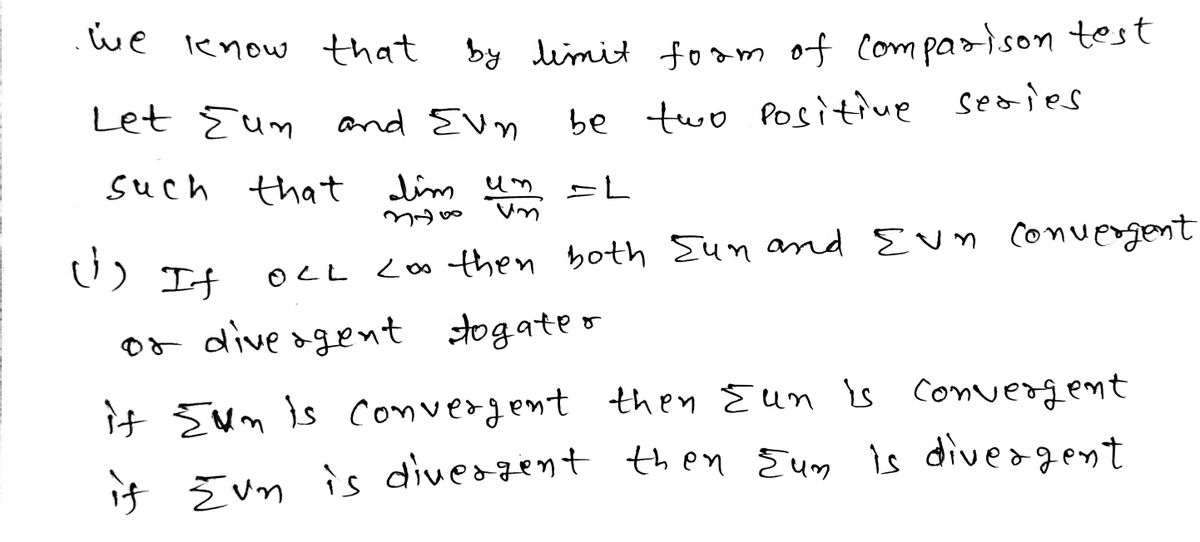 .we know that by limit form of comparison test
Let Σun and Σvn be two Positive series
such that lim n→∞ un/vn = L
(i) If 0<L <∞ then both Σun and Σvn convergent
or divergent togater
if Σvn is convergent then Σun is convergent
if Σvn is divergent then Σun is divergent